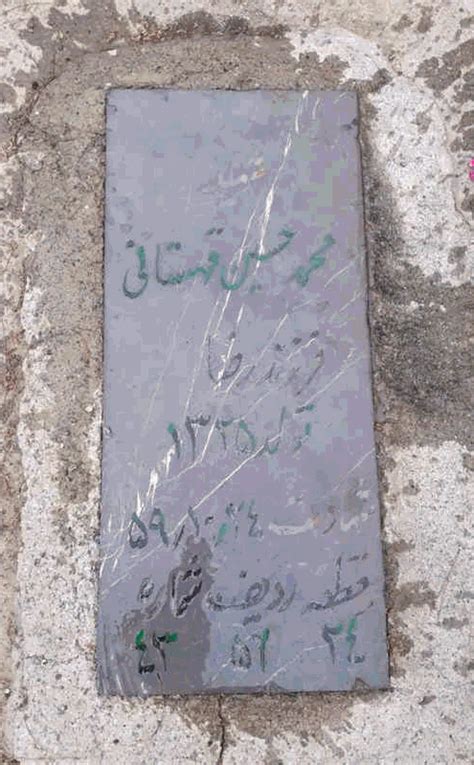 شهید
محمد حسین قهستانی
فرزند رضا
تولد ۱۳۳۵
شهادت ۵۹٫۱۰٫۲۴
قطعه ردیف شماره
۲۴ ۵۶ ۴۳